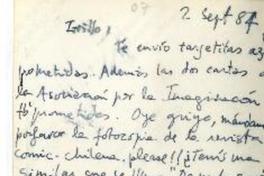 07
2 Sept 84
te envío targetitas
prometidas. Además las dos cartas
la Asociación por la Imaginación
prometidas. Oye gringo, mándame
porfavor la fotocopia de la revista
comic-chilena, please!! ¿Tenís una
similar que se